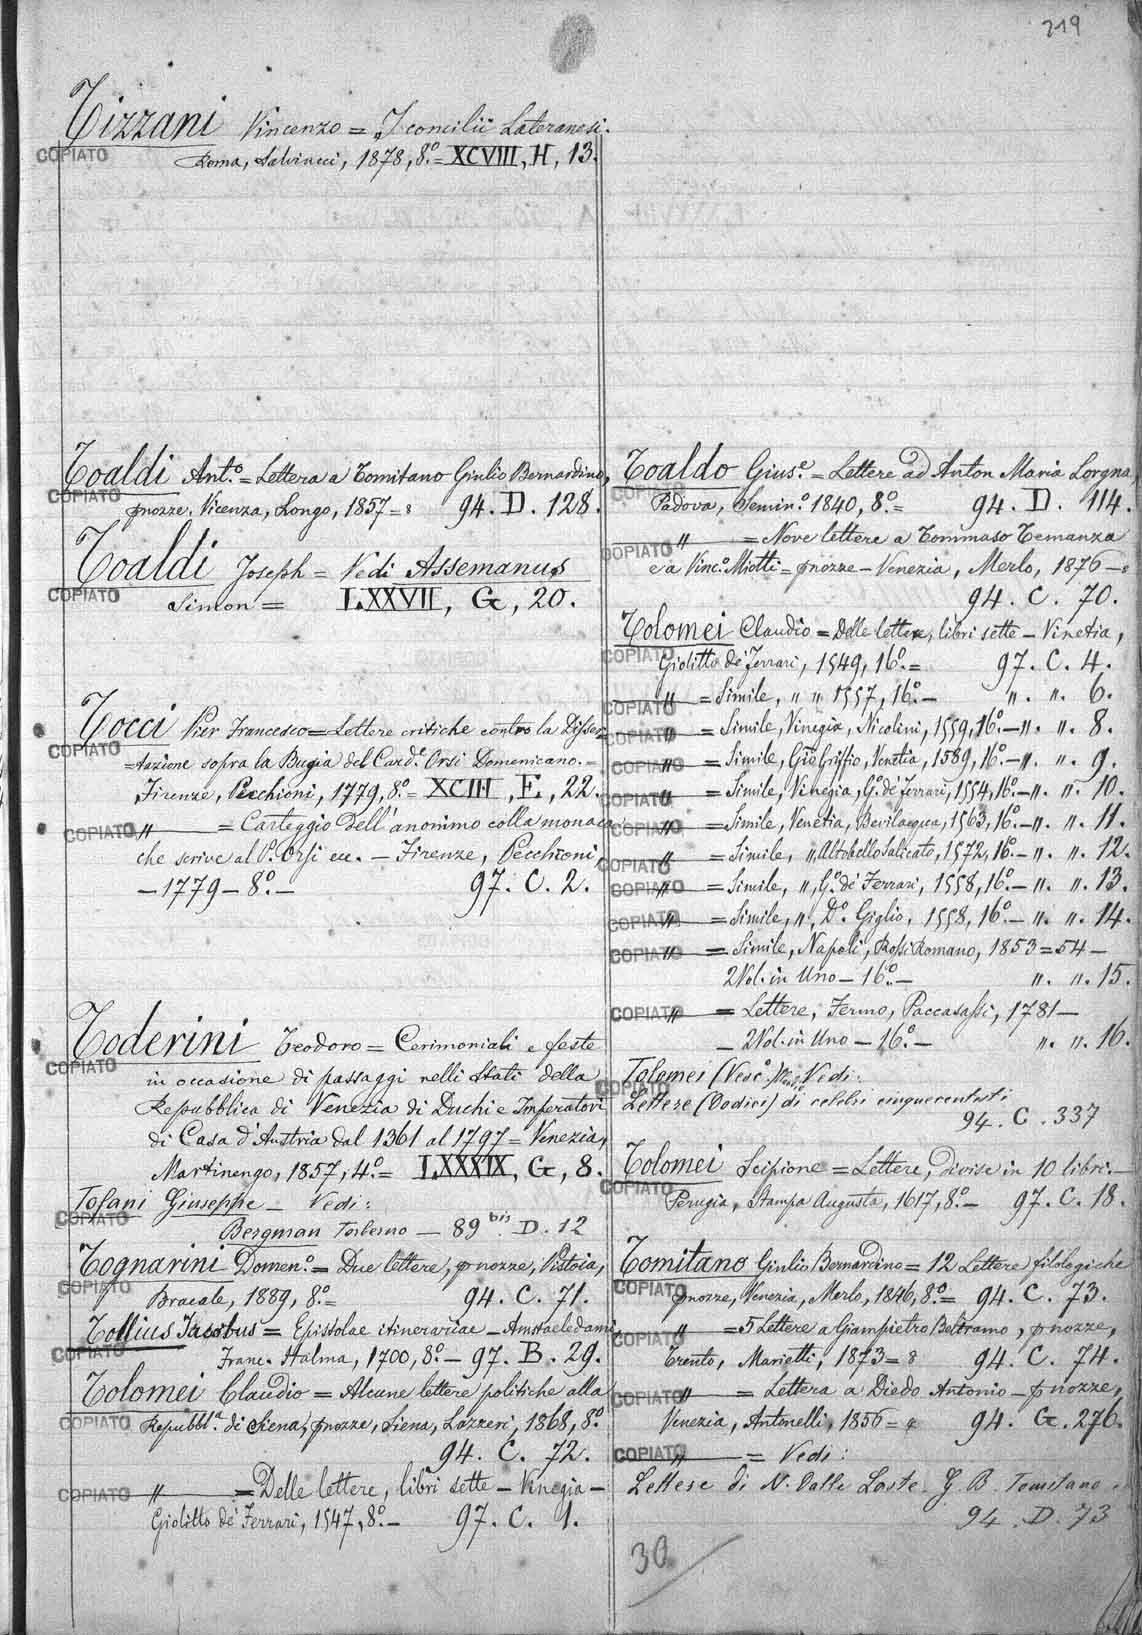 219
Tizzani Vincenzo = I concilii Lateranesi.
COPIATO
Roma, Salviucci, 1878, 8º = XCVIII, H, 13.
Toaldi Antº = Lettera a Tomitano Giulio Bernardino,
COPIATO
p nozze. Vicenza, Longo, 1857 = 8 94. D. 128.
Toaldi Joseph = Vedi Assemanus
COPIATO
Simon = LXXVII, G, 20.
Tocci Pier Francesco = Lettere critiche contro la Disser
COPIATO
= tazione sopra la Bugia del Card.e Orsi Domenicano. =
Firenze, Pecchioni, 1779, 8º = XCIII, E, 22.
COPIATO " = Carteggio dell'anonimo colla monaca
che scrive al P. Orsi ecc. – Firenze, Pecchioni,
– 1779 – 8º – 97. C. 2.
Toderini Teodoro = Cerimoniali e feste
COPIATO
in occasione di passaggi nelli Stati della
Repubblica di Venezia di Duchi e Imperatori
di Casa d'Austria dal 1361 al 1797 = Venezia,
Martinengo, 1857, 4º = LXXXIX, G, 8.
Tofani Giuseppe – Vedi:
COPIATO
Bergman Torberno – 89 bis. D. 12
Tognarini Domenº = Due lettere, p nozze, Pistoia,
COPIATO
Bracale, 1889, 8º = 94. C. 71.
Tollius Jacobus = Epistolae itinerariae – Amstaeledami,
COPIATO
Franc. Halma, 1700, 8º – 97. B. 29.
Tolomei Claudio = Alcune lettere politiche alla
COPIATO
Repubbl.a di Siena, p nozze, Siena, Lazzeri, 1868, 8º
94. C. 72.
COPIATO " = Delle lettere, libri sette – Vinegia –
Giolitto de' Ferrari, 1547, 8º – 97. C. 1.
Toaldo Gius.e = Lettere ad Anton Maria Lorgna,
COPIATO
Padova, Semin.º 1840, 8º = 94. D. 114.
COPIATO " = Nove lettere a Tommaso Temanza
e a Vinc.º Miotti = p nozze – Venezia, Merlo, 1876 – 8
94. C. 70.
Tolomei Claudio = Delle lettere, libri sette – Vinetia,
COPIATO
Giolitto de' Ferrari, 1549, 16º = 97. C. 4.
COPIATO " = Simile, " " 1557, 16º – " . " . 6.
COPIATO " = Simile, Vinegia, Nicolini, 1559, 16º – " . " . 8.
COPIATO " = Simile, Giô Griffio, Venetia, 1589, 16º – " . " . 9.
COPIATO " = Simile, Vinegia, G.º de' Ferrari, 1554, 16º – " . " . 10.
COPIATO " = Simile, Venetia, Bevilacqua, 1563, 16º – " . " . 11.
COPIATO " = Simile, ", Altobello Salicato, 1572, 16º – " . " . 12.
COPIATO " = Simile, ", G.º de' Ferrari, 1558, 16º – " . " . 13.
COPIATO " = Simile, ", D.º Giglio, 1558, 16º – " . " . 14.
COPIATO " = Simile, Napoli, Rossi Romano, 1853 = 54 –
2 Vol. in Uno – 16º – " . " . 15.
COPIATO " = Lettere, Fermo, Paccasassi, 1781 –
– 2 Vol. in Uno – 16º – " . " . 16.
Tolomei (Vesc.º) Vedi:
COPIATO
Lettere (Dodici) di celebri cinquecentisti
94. C. 337
Tolomei Scipione = Lettere, divise in 10 libri. –
COPIATO
Perugia, Stampa Augusta, 1617, 8º – 97. C. 18.
Tomitano Giulio Bernardino = 12 Lettere filologiche
COPIATO
p nozze, Venezia, Merlo, 1846, 8º = 94. C. 73.
" = 5 Lettere a Giampietro Beltramo, p nozze,
Trento, Marietti, 1873 = 8 94. C. 74.
COPIATO " = Lettera a Diedo Antonio – p nozze,
Venezia, Antonelli, 1856 = 8 94. G. 276.
COPIATO " = Vedi:
Lettere di N. Dalle Laste. G. B. Tomitano.
94. D. 73
30